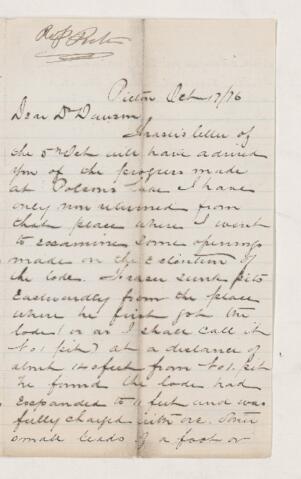 Pictou Oct 17/76
Dear Dr Dawson
Fraser's letter of
the 5th Oct will have advised
you of the progress made
at Polson's Lake I have
only now returned from
that place where I went
to examine some openings
made on the extension of
the lode. Fraser sunk pits
Eastwardly from the place
where he first got the
lode (or as I shall call it
No 1 pit) at a distance of
about feet from No 1 pit
he found the lode had
expanded to 11 feet and was
fully charged with ore. Some
small leads of a foot or